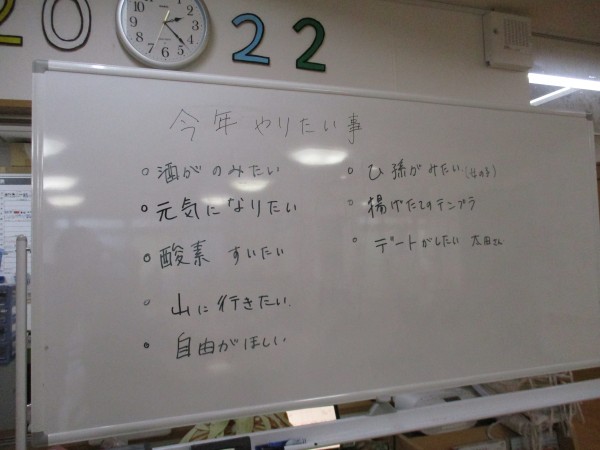 2022
12
1
2
3
4
5
6
7
8
9
10
今年やりたい事
○酒がのみたい
○元気になりたい
○酸素 すいたい
○山に行きたい.
○自由がほしい
○ひ孫がみたい
○揚げたてのテンプラ
○デートがしたい